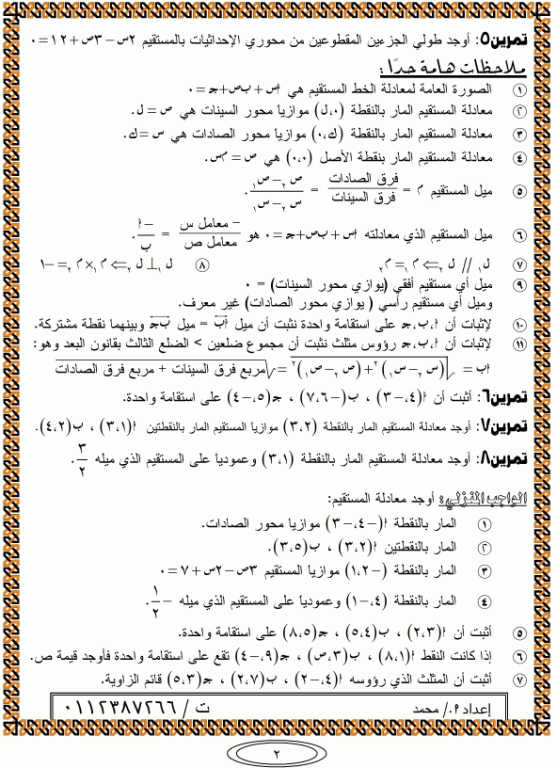 تمرين٥: أوجد طولي الجزءين المقطوعين من محوري الإحداثيات بالمستقيم ٢س − ٣ص + ١٢ = ٠
ملاحظات هامة جداً:
١ الصورة العامة لمعادلة الخط المستقيم هي أس + ب ص + جـ = ٠
٢ معادلة المستقيم المار بالنقطة (٠، ل) موازيا محور السينات هي ص = ل.
٣ معادلة المستقيم المار بالنقطة (ك، ٠) موازيا محور الصادات هي س = ك.
٤ معادلة المستقيم المار بنقطة الأصل (٠، ٠) هي ص = م س.
٥ ميل المستقيم م = فرق الصادات / فرق السينات = (ص٢ − ص١) / (س٢ − س١).
٦ ميل المستقيم الذي معادلته أس + ب ص + جـ = ٠ هو − معامل س / معامل ص = −أ / ب.
٧ ل١ // ل٢ ⇐⇒ م١ = م٢ ٨ ل١ ⊥ ل٢ ⇐⇒ م١ × م٢ = −١
٩ ميل أي مستقيم أفقي (يوازي محور السينات) = ٠
وميل أي مستقيم رأسي ( يوازي محور الصادات) غير معرف.
١٠ لإثبات أن أ، ب، جـ على استقامة واحدة نثبت أن ميل أب = ميل ب جـ وبينهما نقطة مشتركة.
١١ لإثبات أن أ، ب، جـ رؤوس مثلث نثبت أن مجموع ضلعين > الضلع الثالث بقانون البعد وهو:
أب = √((س٢ − س١)² + (ص٢ − ص١)²) = √(مربع فرق السينات + مربع فرق الصادات)
تمرين٦: أثبت أن أ(٤، −٣) ، ب(−٦، ٧) ، جـ(٥، −٤) على استقامة واحدة.
تمرين٧: أوجد معادلة المستقيم المار بالنقطة (٣،٢) موازيا المستقيم المار بالنقطتين أ(٣،١) ، ب(٤،٢).
تمرين٨: أوجد معادلة المستقيم المار بالنقطة (٣،١) وعموديا على المستقيم الذي ميله ٣/٢.
الواجب المنزلي: أوجد معادلة المستقيم:
١ المار بالنقطة أ(−٤، −٣) موازيا محور الصادات.
٢ المار بالنقطتين أ(٣،٢) ، ب(٣،٥).
٣ المار بالنقطة (−١،٢) موازيا المستقيم ٣ص − ٢س + ٧ = ٠
٤ المار بالنقطة (٤، −١) وعموديا على المستقيم الذي ميله −١/٢.
٥ أثبت أن أ(٢،٣) ، ب(٥،٤) ، جـ(٨،٥) على استقامة واحدة.
٦ إذا كانت النقط أ(١،٨) ، ب(٣،ص) ، جـ(٩، −٤) تقع على استقامة واحدة فأوجد قيمة ص.
٧ أثبت أن المثلث الذي رؤوسه أ(٤، −٢) ، ب(٢،٧) ، جـ(٥،٣) قائم الزاوية.
إعداد أ./ محمد ت / ٠١١٢٣٨٧٢٦٦
٢